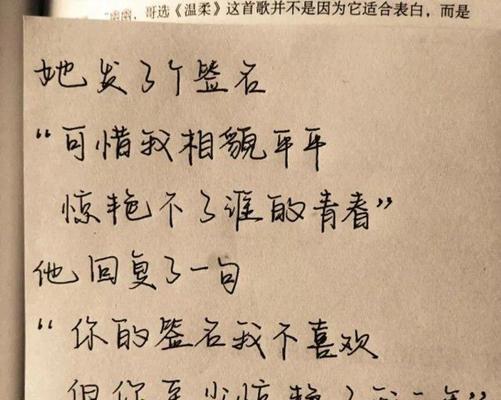 哥选《温柔》这首歌并不是因为它适合表白，而是
她发了个签名
“可惜我相貌平平
惊艳不了谁的青春”
他回复了一句
“你的签名我不喜欢
但你至少惊艳了